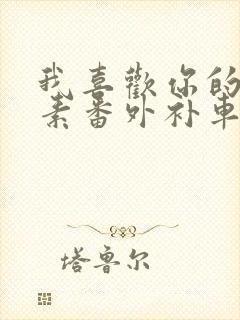 我喜歡你的
素番外补車
塔鲁尔